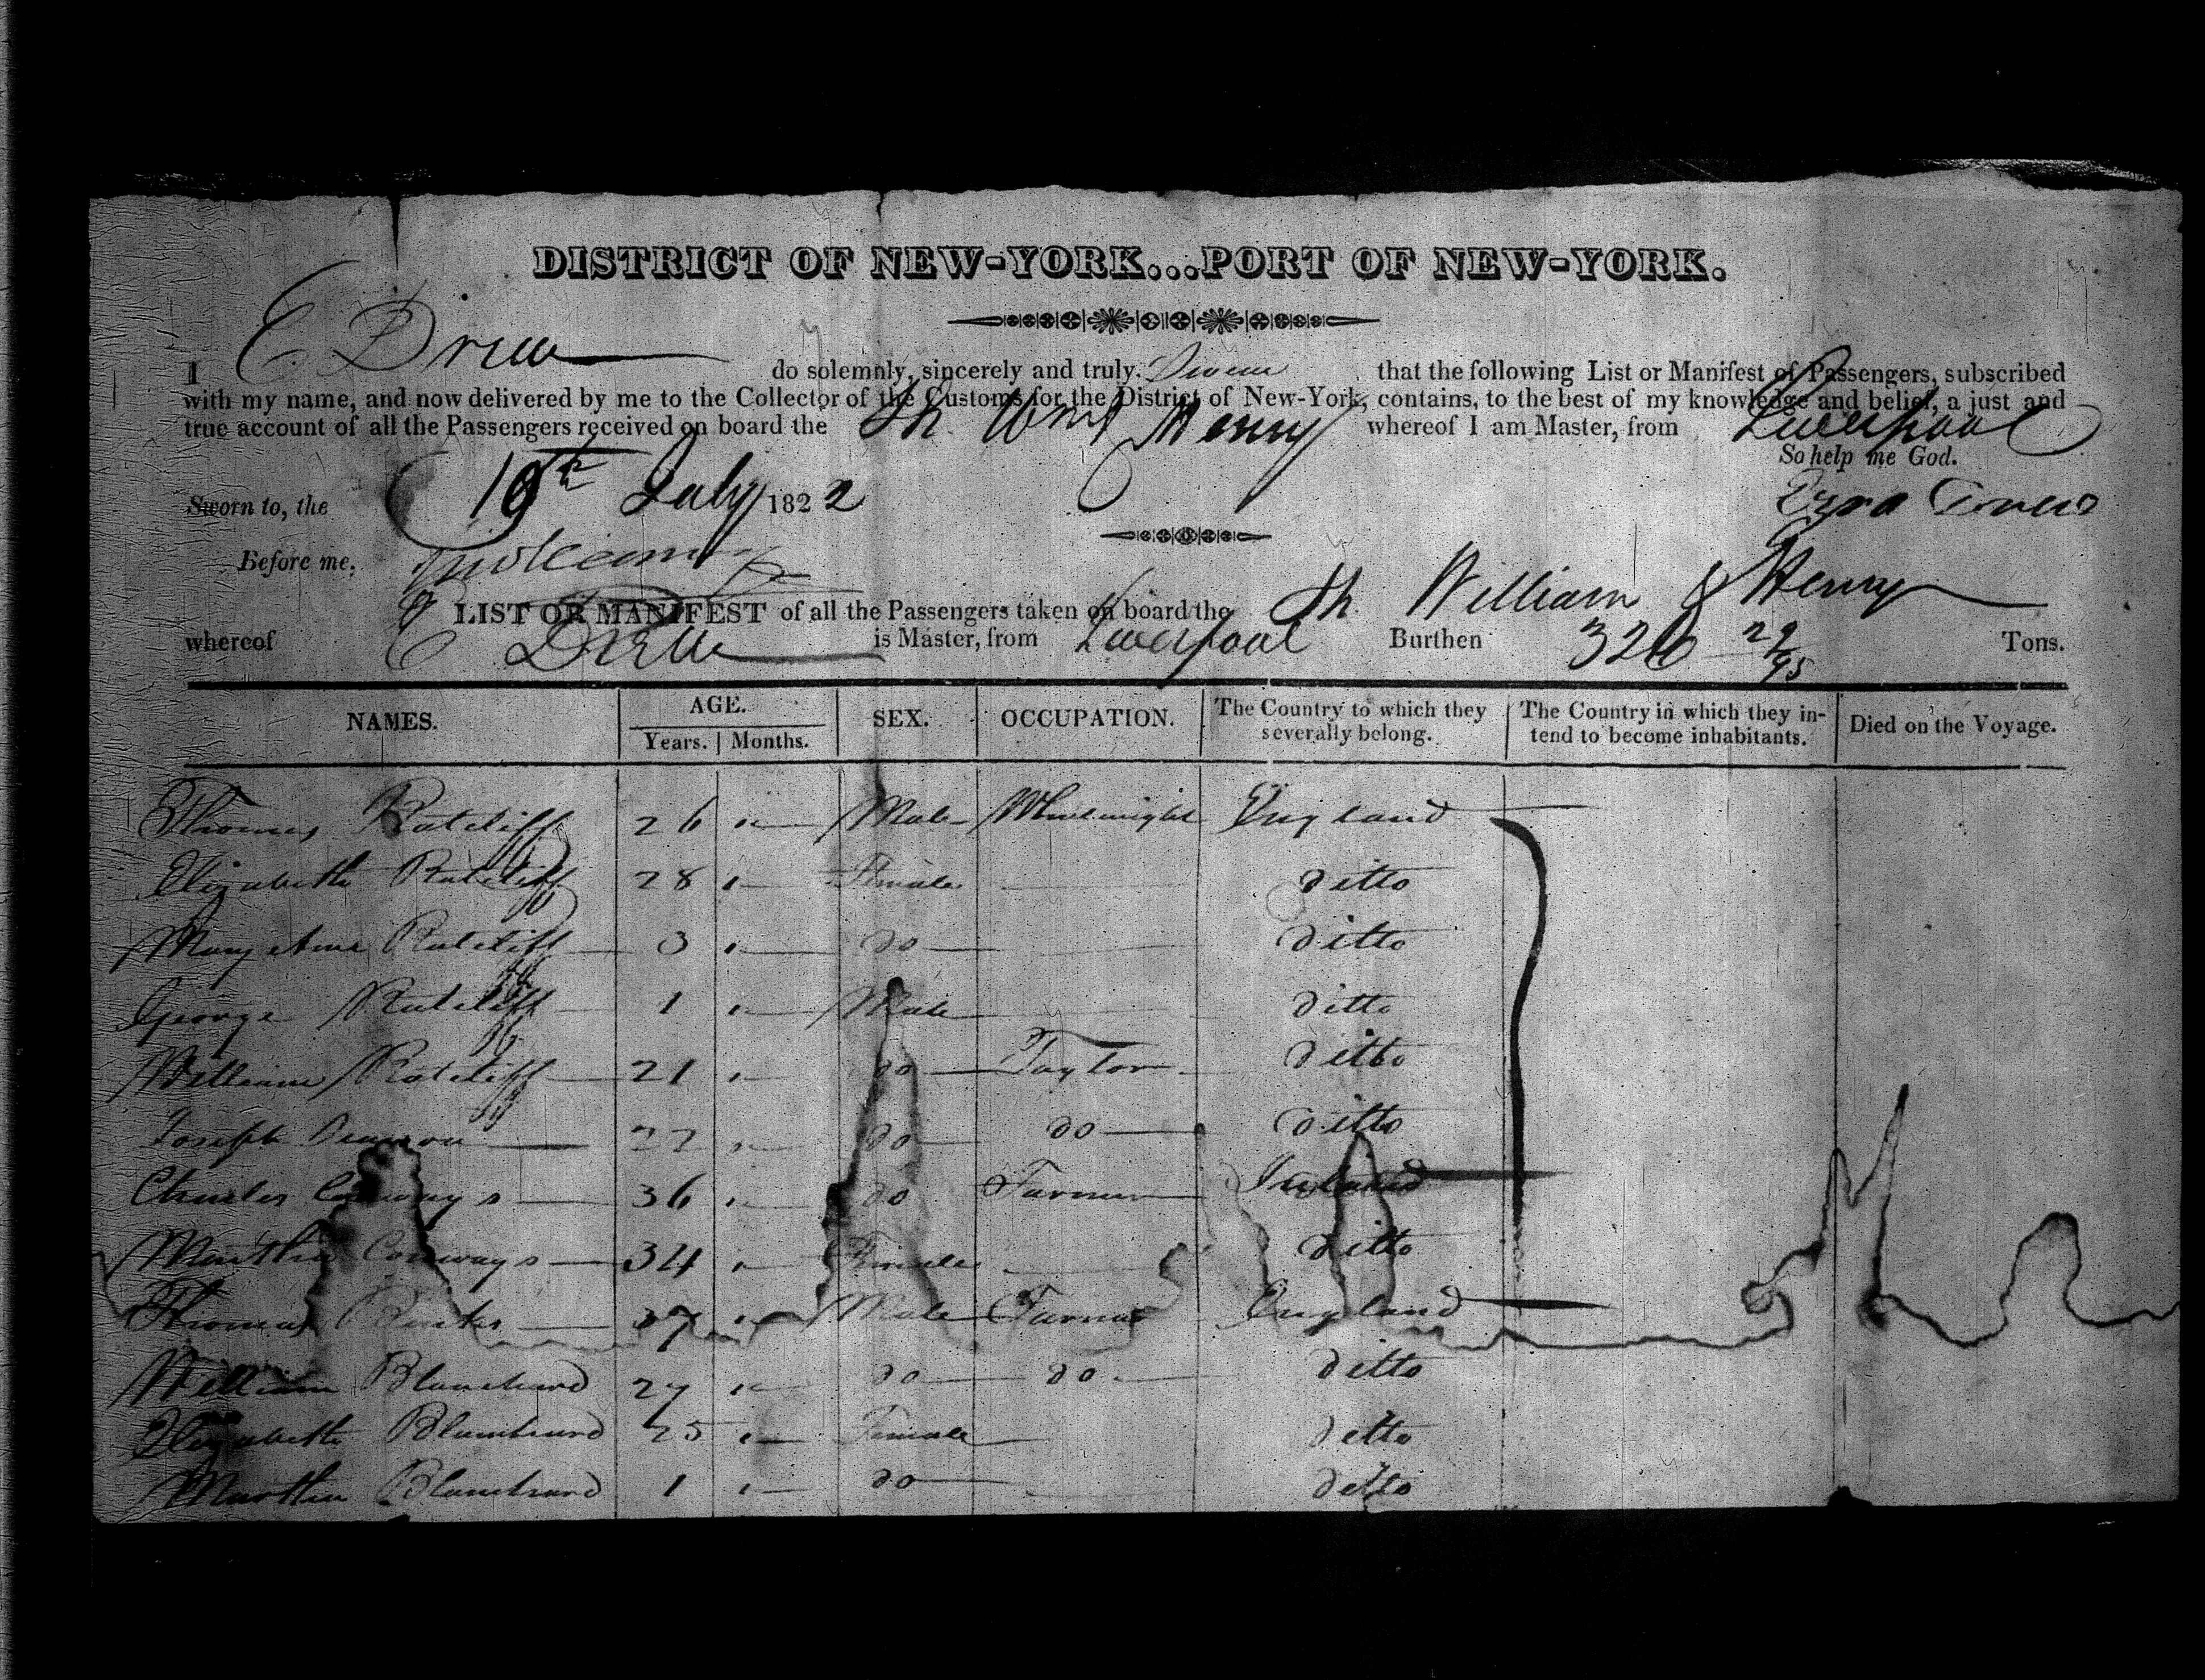 DISTRICT OF NEW-YORK...PORT OF NEW-YORK.
I E Drew do solemnly, sincerely and truly. Swear that the following List or Manifest of Passengers, subscribed
with my name, and now delivered by me to the Collector of the Customs for the District of New-York, contains, to the best of my knowledge and belief, a just and
true account of all the Passengers received on board the Sh Wm & Henry whereof I am Master, from Liverpool
So help me God.
Sworn to, the 19th July 1822 Ezra Drew
Before me,
LIST OR MANIFEST of all the Passengers taken on board the Sh William & Henry
whereof E Drew is Master, from Liverpool Burthen 326 29/95 Tons.
NAMES. AGE. Years. Months. SEX. OCCUPATION. The Country to which they severally belong. The Country in which they intend to become inhabitants. Died on the Voyage.
Thomas Ratcliff 26 " Male Wheelwright England
Elizabeth Ratcliff 28 " Female ditto
Mary Ann Ratcliff 3 " do ditto
George Ratcliff 1 " Male ditto
William Ratcliff 21 " do Taylor ditto
Joseph 22 " do do ditto
Charles Conways 36 " do Farmer Ireland
Martha Conways 34 " Female ditto
Thomas 37 " Male Farmer England
William Blanchard 27 " do do ditto
Elizabeth Blanchard 25 " Female ditto
Martha Blanchard 1 " do ditto